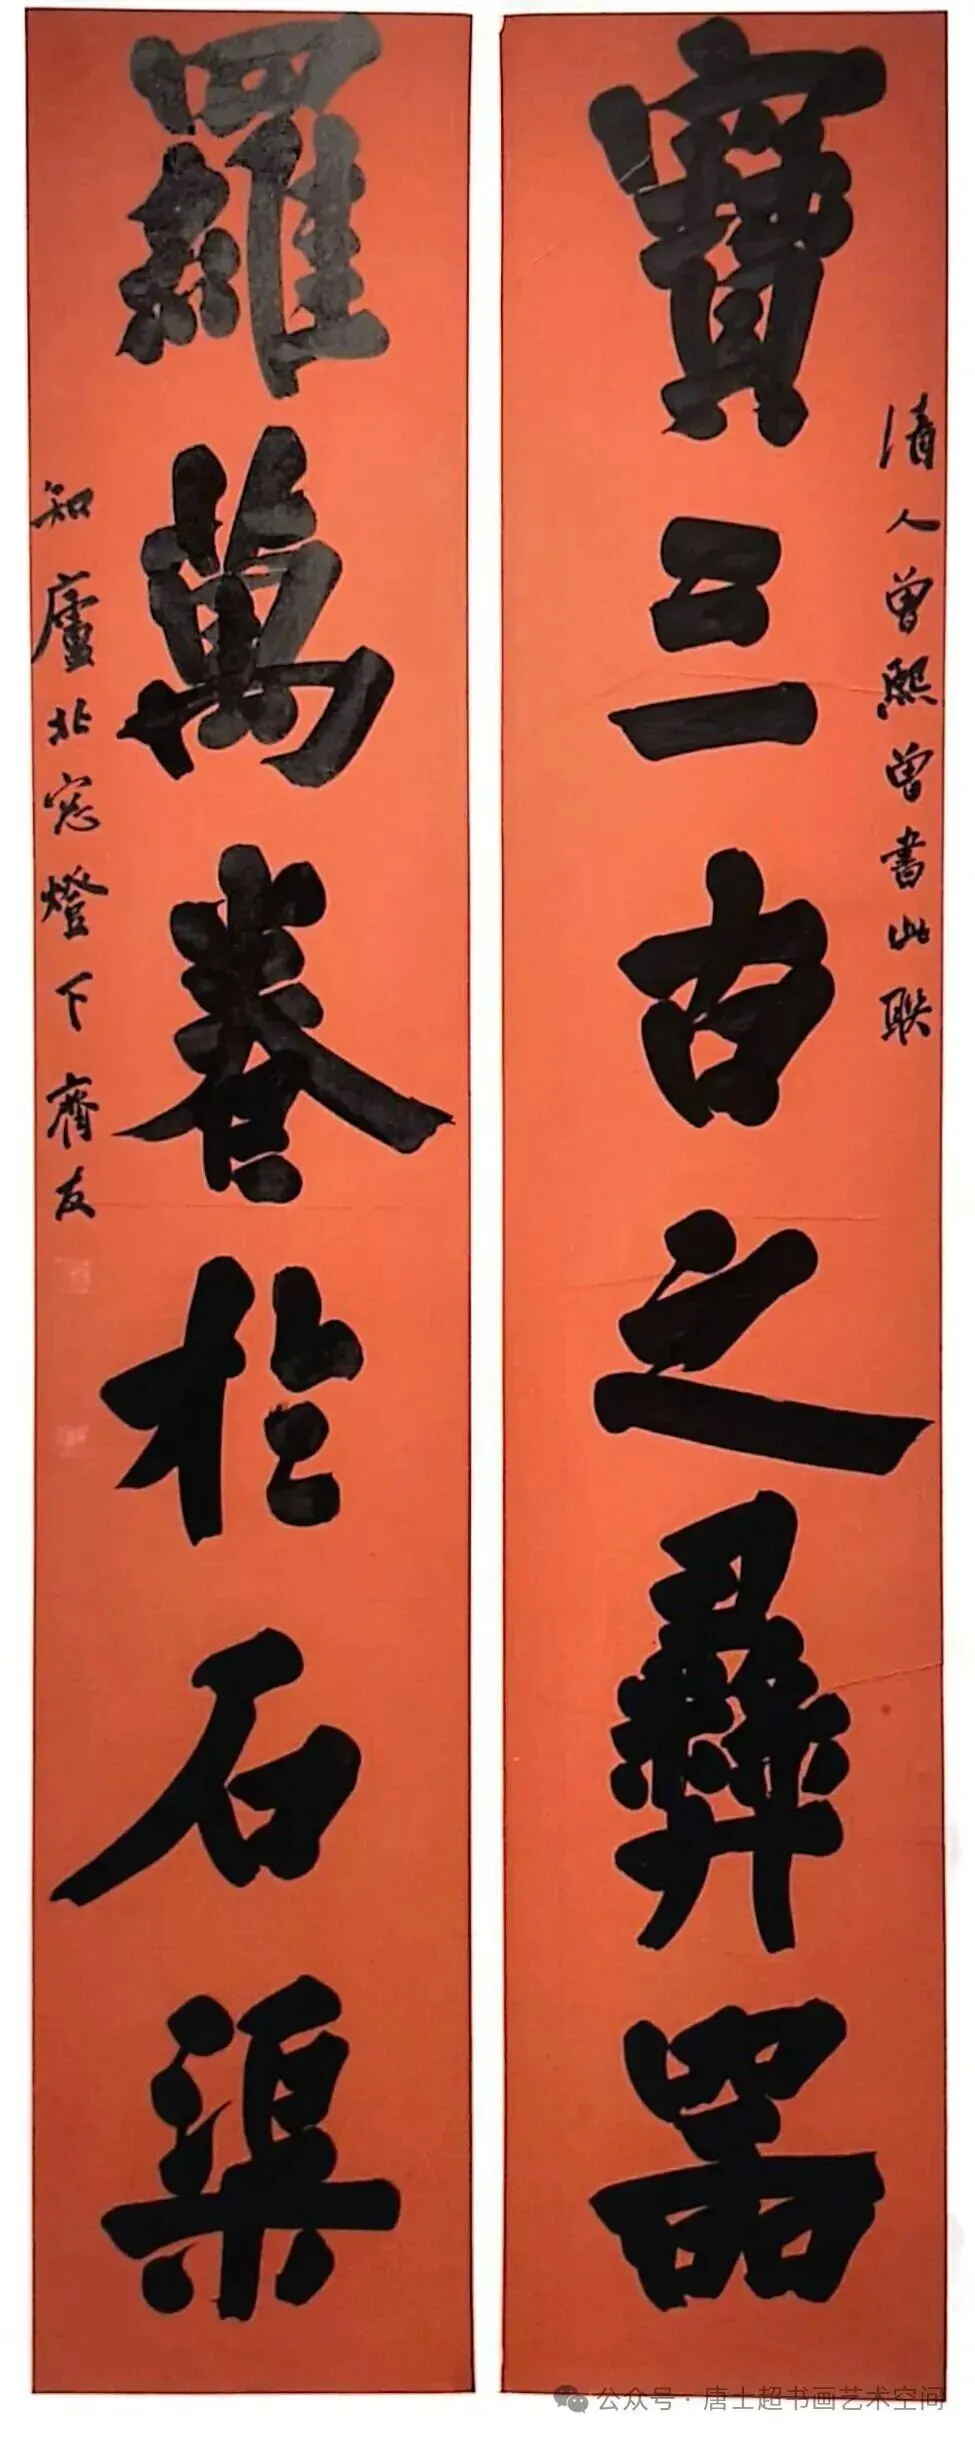 清人曾熙曾書此联
寶三古之彝器
羅萬卷於石渠
知廬北窓燈下齊友
公众号·唐士超书画艺术空间